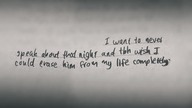 I want to never
speak about that night and tbh wish I
could erase him from my life completely.